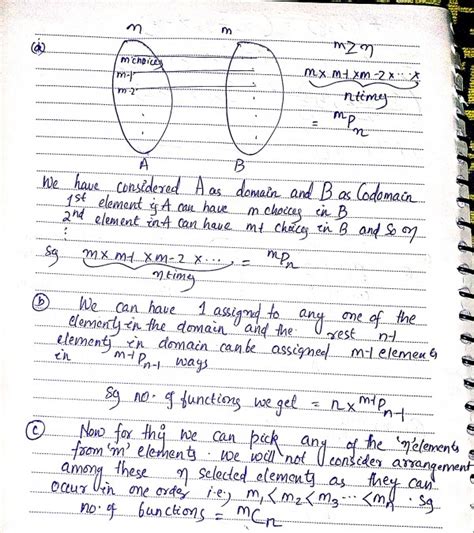 n m
(a) m ≥ n
m choices m × m-1 × m-2 × ... ×
m-1
m-2 n times
= ᵐPₙ
A B
We have considered A as domain and B as Codomain
1st element in A can have m choices in B
2nd element in A can have m-1 choices in B and so on
⋮
So m × m-1 × m-2 × ..., = ᵐPₙ
n times
(b) We can have 1 assigned to any one of the
elements in the domain and the rest n-1
elements in domain can be assigned m-1 elements
in ᵐ⁻¹Pₙ₋₁ ways
So no. of functions we get = n × ᵐ⁻¹Pₙ₋₁
(c) Now for this we can pick any of the 'n' elements
from 'm' elements. We will not consider arrangement
among these n selected elements as they can
occur in one order i.e; m₁ < m₂ < m₃ ... < mₙ. So
no. of functions = ᵐCₙ